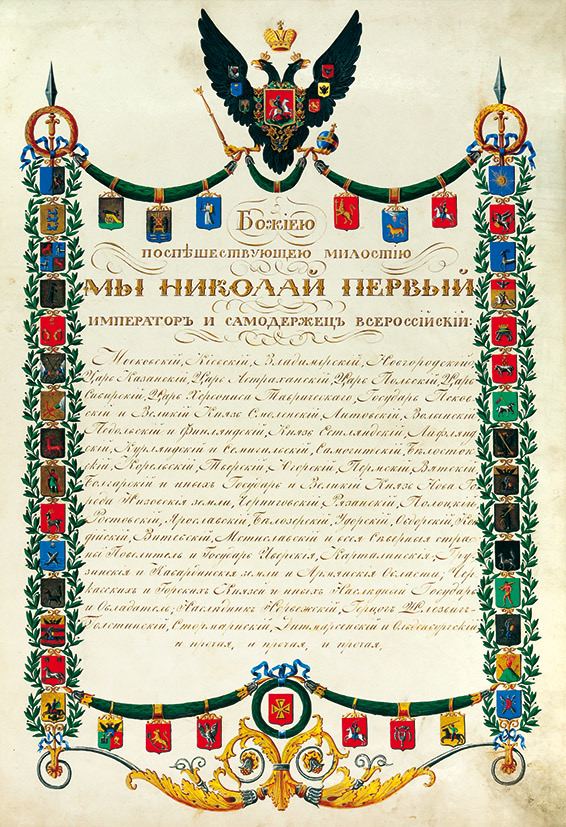 Божіею
поспѣшествующею милостію
мы Николай Первый
императоръ и самодержецъ всероссійскій:
Московскій, Кіевскій, Владимирскій, Новгородскій,
Царь Казанскій, Царь Астраханскій, Царь Польскій, Царь
Сибирскій, Царь Херсониса Таврическаго, Государь Псков-
скій и Великій Князь Смоленскій, Литовскій, Волынскій
Подольскій и Финляндскій, Князь Естляндскій, Лифлянд-
скій, Курляндскій и Семигальскій, Самогитскій, Бѣлосток-
скій, Корельскій, Тверскій, Югорскій, Пермскій, Вятскій
Болгарскій и иныхъ; Государь и Великій Князь Нова Го-
рода Низовскія земли, Черниговскій, Рязанскій, Полоцкій,
Ростовскій, Ярославскій, Бѣлозерскій, Удорскій, Обдорскій, Кон-
дійскій, Витебскій, Мстиславскій и всея Сѣверныя стра-
ны Повелитель и Государь Иверскія, Карталинскія, Гру-
зинскія и Кабардинскія земли и Армянскія Области; Чер-
касскихъ и Горскихъ Князей и иныхъ Наслѣдный Государь
и Обладатель; Наслѣдникъ Норвежскій, Герцогъ Шлезвигъ-
Голстинскій, Стормарнскій, Дитмарсенскій и Ольденбургскій
и прочая, и прочая, и прочая,